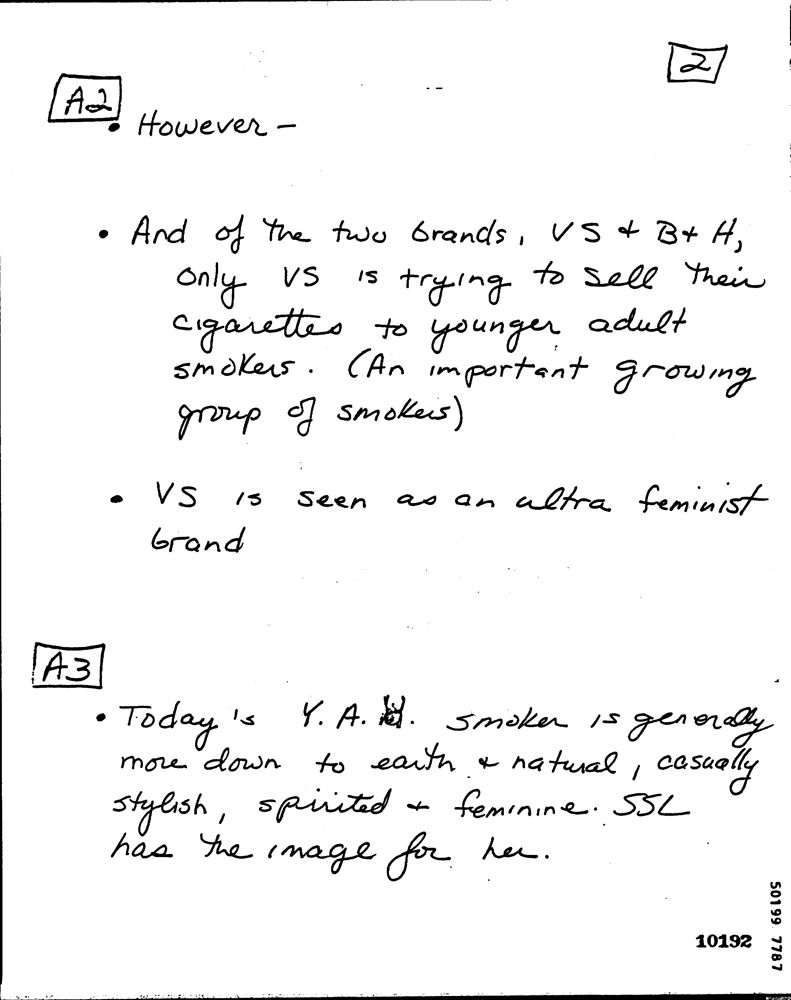 2
A2
• However -
• And of the two brands, VS + B+H,
only VS is trying to sell their
cigarettes to younger adult
smokers. (An important growing
group of smokers)
• VS is seen as an ultra feminist
brand
A3
• Today's Y. A. smoker is generally
more down to earth + natural, casually
stylish, spirited + feminine. SSL
has the image for her.
10192
50199 7787